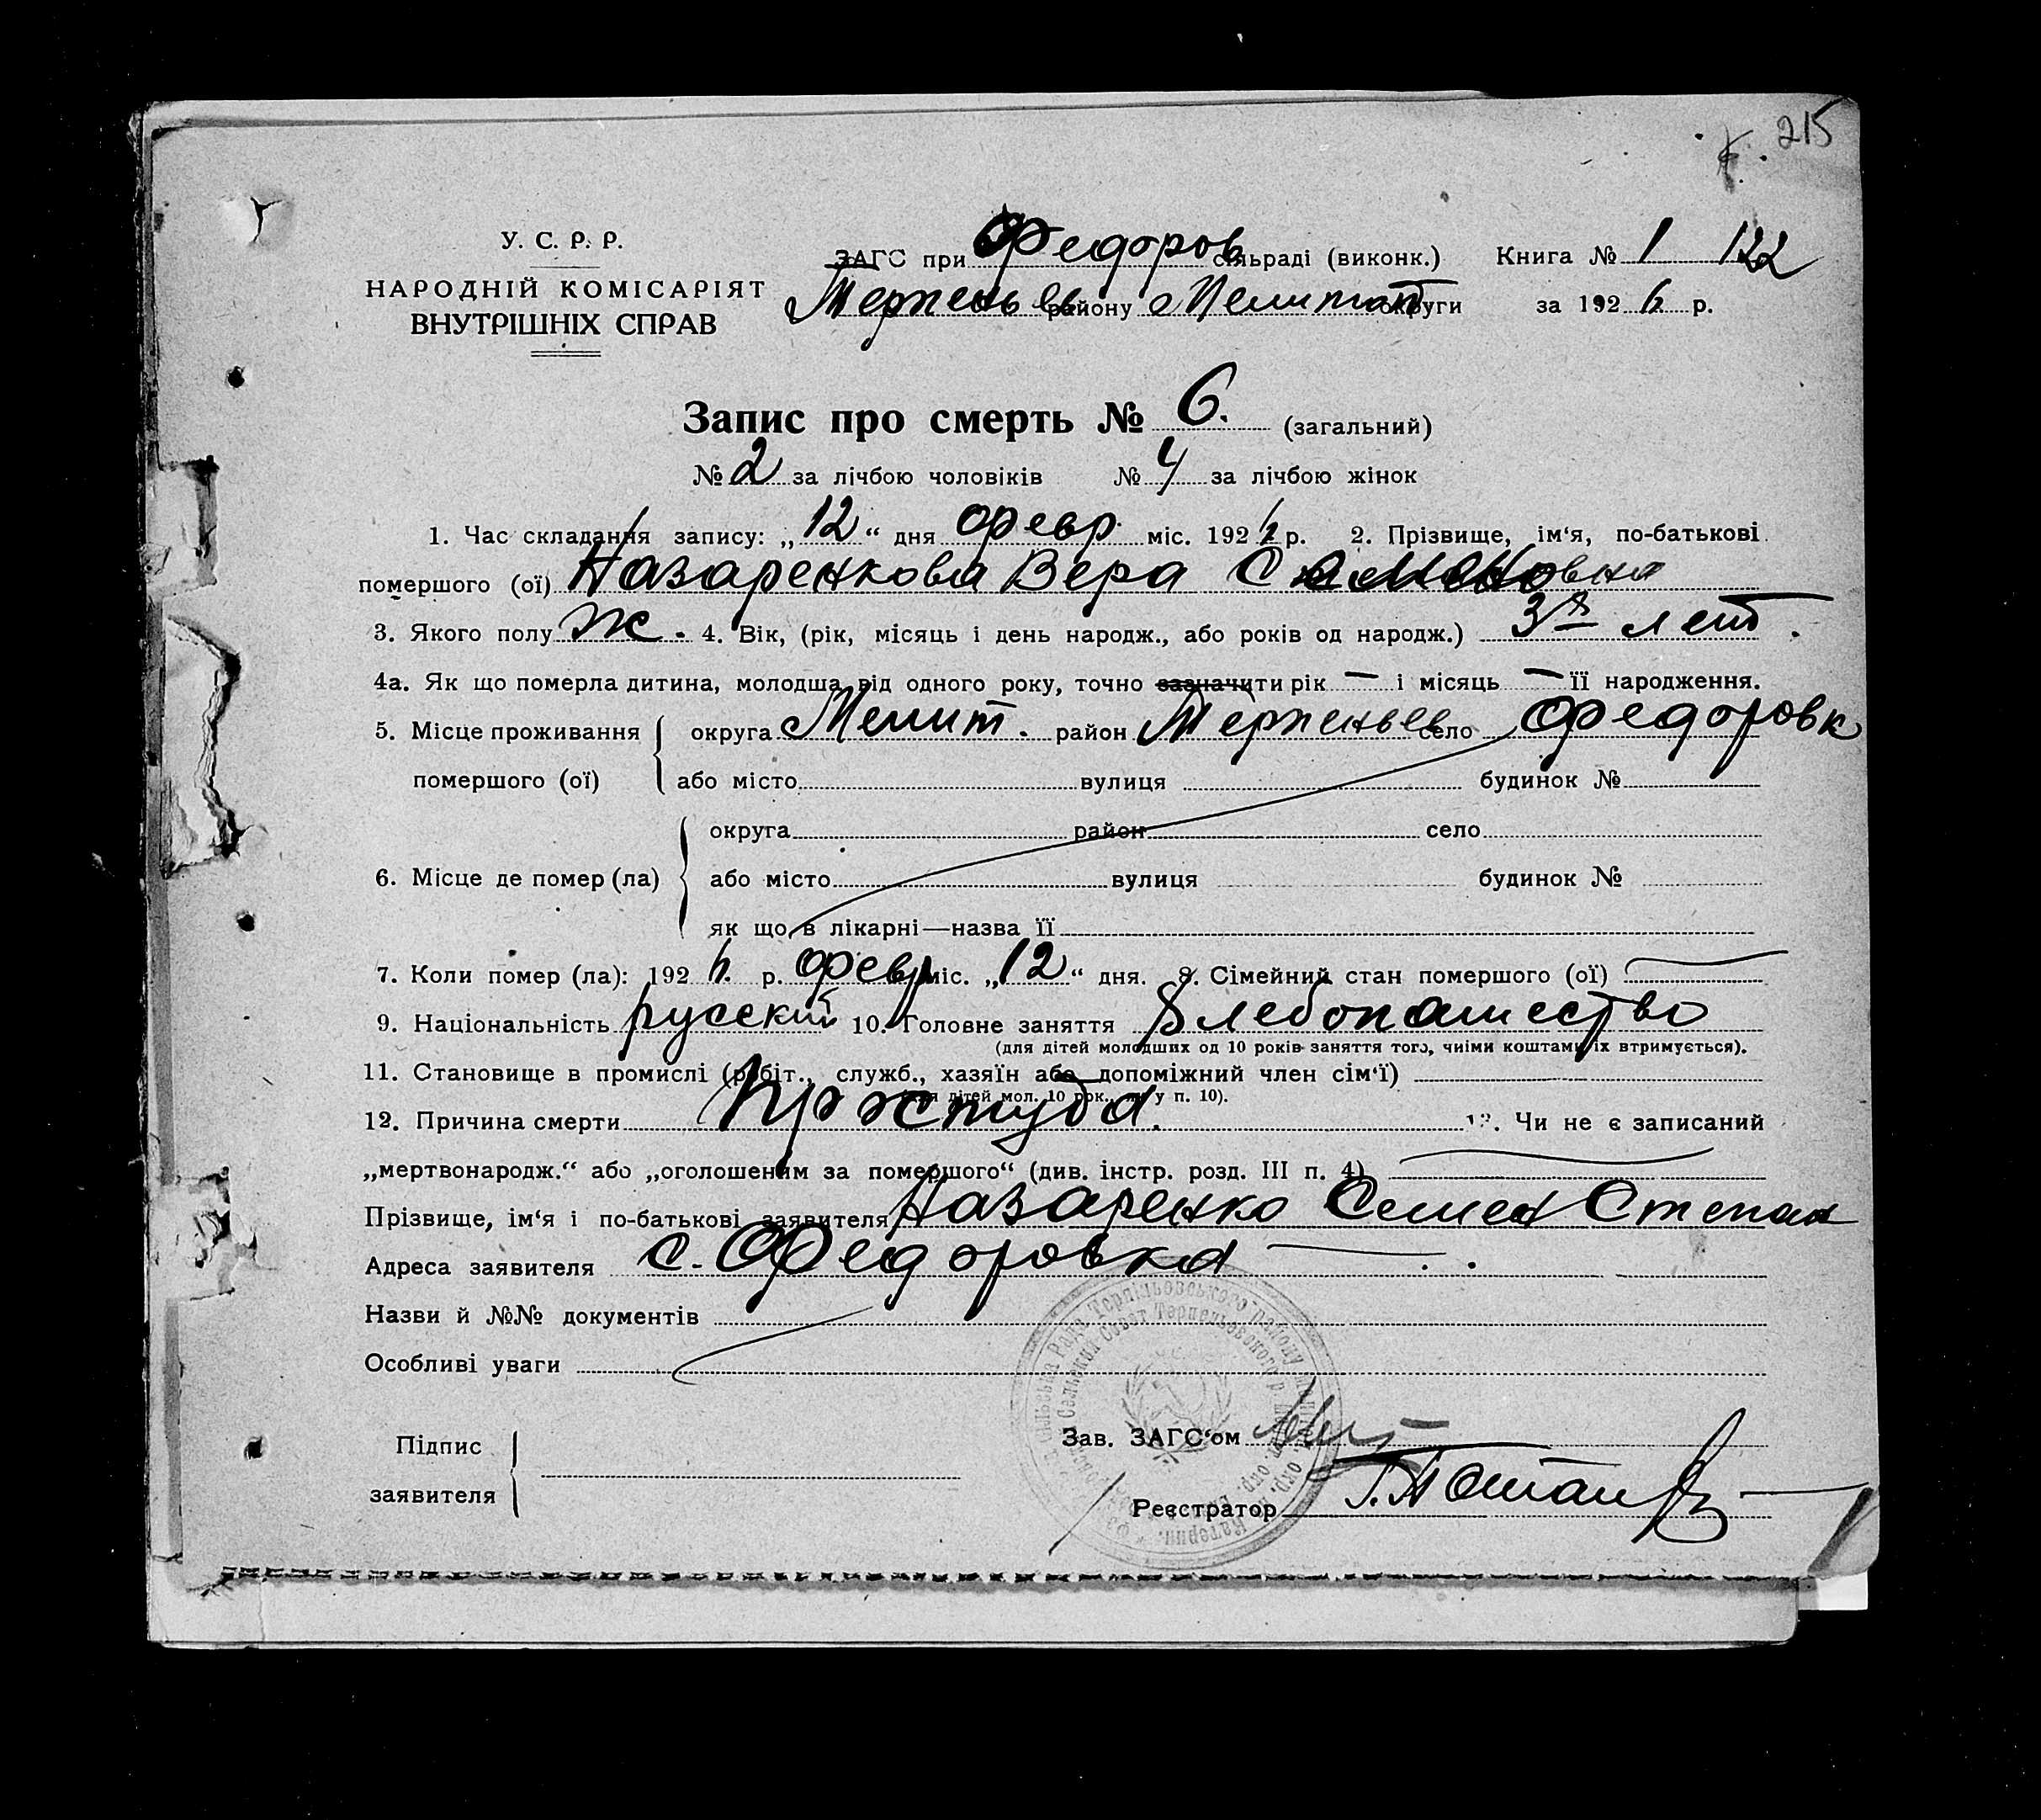 215
У. С. Р. Р.
НАРОДНІЙ КОМІСАРІЯТ
ВНУТРІШНІХ СПРАВ
ЗАГС при Федоров сільраді (виконк.) Книга № 1 122
Терпеньев району Мелитоп округи за 1926 р.
Запис про смерть № 6. (загальний)
№ 2 за лічбою чоловіків № 4 за лічбою жінок
1. Час складання запису: „12“ дня февр міс. 1926 р. 2. Прізвище, ім‘я, по-батькові
помершого (ої) Назаренкова Вера Семеновна
3. Якого полу ж. 4. Вік, (рік, місяць і день народж., або років од народж.) 3х лет.
4а. Як що померла дитина, молодша від одного року, точно зазначити рік — і місяць — її народження.
5. Місце проживання округа Мелит. район Терпеньев село Федоровк
помершого (ої) або місто вулиця будинок №
округа район село
6. Місце де помер (ла) або місто вулиця будинок №
як що в лікарні—назва її
7. Коли помер (ла): 1926 р. февр міс. „12“ дня. 8. Сімейний стан помершого (ої)
9. Національність русский 10. Головне заняття Хлебопашество
(для дітей молодших од 10 років заняття того, чиїми коштами їх втримується).
11. Становище в промислі (робіт., служб., хазяїн або допоміжний член сім‘ї)
(для дітей мол. 10 рок., як у п. 10).
12. Причина смерти Простуда. 13. Чи не є записаний
„мертвонародж.“ або „оголошеним за помершого“ (див. інстр. розд. III п. 4)
Прізвище, ім‘я і по-батькові заявителя Назаренко Семен Степан
Адреса заявителя с. Федоровка
Назви й №№ документів
Особливі уваги
Підпис
заявителя
Зав. ЗАГС‘ом
Реєстратор